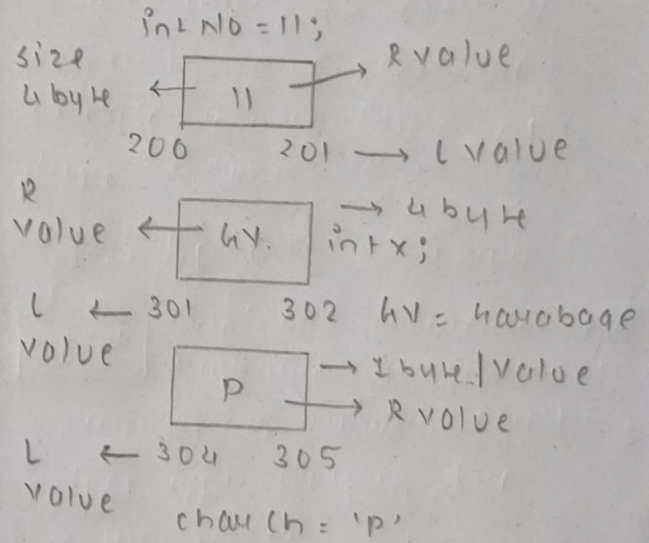 int No = 11;
size
4 byte
11
R value
200 201 → L value
R
value
GV.
→ 4 byte
int x;
L ← 301 302 GV = Garabage
value
P
→ 1 byte / value
→ R value
L ← 304 305
value
char ch = 'p'